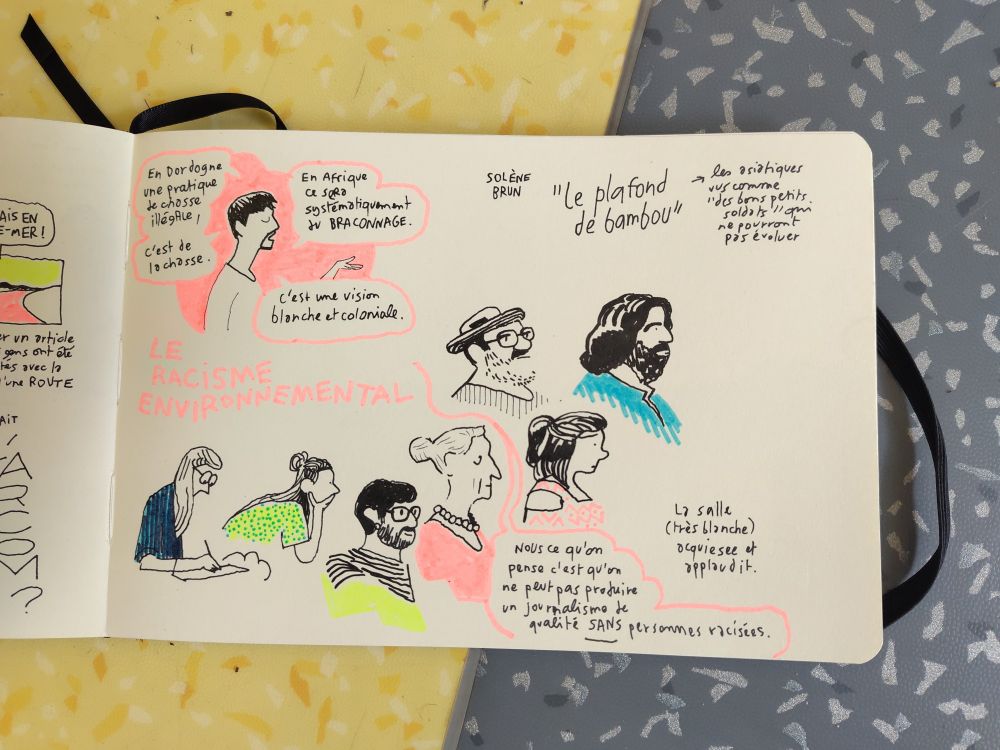 AIS EN
E-MER!
er un article
gens ont été
tés avec la
d'une ROUTE
AIT
En Dordogne
une pratique
de chasse
illégale,
c'est de
la chasse.
En Afrique
ce sera
systématiquement
du BRACONNAGE.
C'est une vision
blanche et coloniale.
LE
RACISME
ENVIRONNEMENTAL
SOLÈNE
BRUN
"Le plafond
de bambou"
→ les asiatiques
vus comme
"des bons petits
soldats" qui
ne pourront
pas évoluer
La salle
(très blanche)
acquiesce et
applaudit.
NOUS ce qu'on
pense c'est qu'on
ne peut pas produire
un journalisme de
qualité SANS personnes racisées.